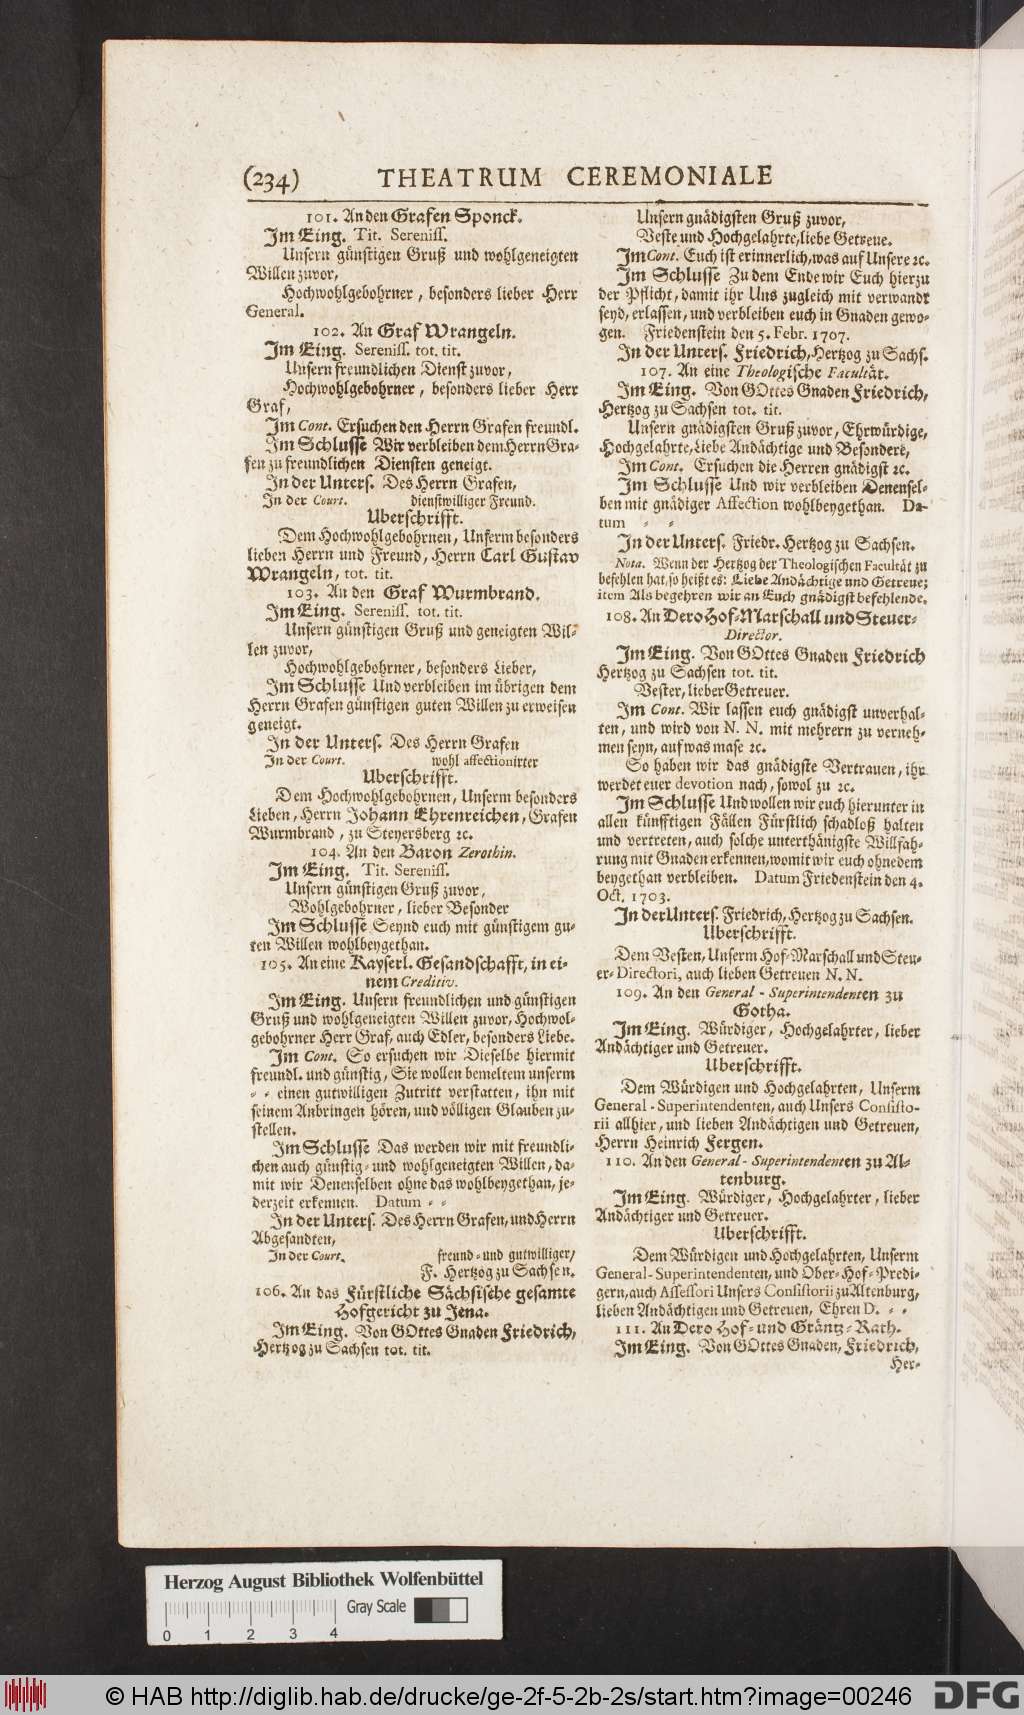 (234) THEATRUM CEREMONIALE
101. An den Grafen Sponck.
Im Eing. Tit. Sereniss.
Unsern günstigen Gruß und wohlgeneigten
Willen zuvor,
Hochwohlgebohrner, besonders lieber Herr
General.
102. An Graf Wrangeln.
Im Eing. Sereniss. tot. tit.
Unsern freundlichen Dienst zuvor,
Hochwohlgebohrner, besonders lieber Herr
Graf,
Im Cont. Ersuchen den Herrn Grafen freundl.
Im Schlusse Wir verbleiben dem Herrn Gra-
fen zu freundlichen Diensten geneigt.
In der Unters. Des Herrn Grafen,
In der Court. dienstwilliger Freund.
Uberschrifft.
Dem Hochwohlgebohrnen, Unserm besonders
lieben Herrn und Freund, Herrn Carl Gustav
Wrangeln, tot. tit.
103. An den Graf Wurmbrand.
Im Eing. Sereniss. tot. tit.
Unsern günstigen Gruß und geneigten Wil-
len zuvor,
Hochwohlgebohrner, besonders Lieber,
Im Schlusse Und verbleiben im übrigen dem
Herrn Grafen günstigen guten Willen zu erweisen
geneigt.
In der Unters. Des Herrn Grafen
In der Court. wohl affectionirter
Uberschrifft.
Dem Hochwohlgebohrnen, Unserm besonders
Lieben, Herrn Johann Ehrenreichen, Grafen
Wurmbrand, zu Steyersberg ꝛc.
104. An den Baron Zerothin.
Im Eing. Tit. Sereniss.
Unsern günstigen Gruß zuvor,
Wohlgebohrner, lieber Besonder
Im Schlusse Seynd euch mit günstigem gu-
ten Willen wohlbeygethan.
105. An eine Kayserl. Gesandschafft, in ei-
nem Creditiv.
Im Eing. Unsern freundlichen und günstigen
Gruß und wohlgeneigten Willen zuvor, Hochwol-
gebohrner Herr Graf, auch Edler, besonders Liebe.
Im Cont. So ersuchen wir Dieselbe hiermit
freundl. und günstig, Sie wollen bemeltem unserm
- - einen gutwilligen Zutritt verstatten, ihn mit
seinem Anbringen hören, und völligen Glauben zu-
stellen.
Im Schlusse Das werden wir mit freundli-
chen auch günstig- und wohlgeneigten Willen, da-
mit wir Denenselben ohne das wohlbeygethan, je-
derzeit erkennen. Datum - -
In der Unters. Des Herrn Grafen, und Herrn
Abgesandten,
In der Court. freund- und gutwilliger/
F. Hertzog zu Sachsen.
106. An das Fürstliche Sächsische gesamte
Hofgericht zu Jena.
Im Eing. Von GOttes Gnaden Friedrich,
Hertzog zu Sachsen tot. tit.
Unsern gnädigsten Gruß zuvor,
Veste und Hochgelahrte, liebe Getreue.
Im Cont. Euch ist erinnerlich, was auf Unsere ꝛc.
Im Schlusse Zu dem Ende wir Euch hierzu
der Pflicht, damit ihr Uns zugleich mit verwandt
seyd, erlassen, und verbleiben euch in Gnaden gewo-
gen. Friedenstein den 5. Febr. 1707.
In der Unters. Friedrich, Hertzog zu Sachs.
107. An eine Theologische Facultät.
Im Eing. Von GOttes Gnaden Friedrich,
Hertzog zu Sachsen tot. tit.
Unsern gnädigsten Gruß zuvor, Ehrwürdige,
Hochgelahrte, Liebe Andächtige und Besonders,
Im Cont. Ersuchen die Herren gnädigst ꝛc.
Im Schlusse Und wir verbleiben Denensel-
ben mit gnädiger Affection wohlbeygethan. Da-
tum - -
In der Unters. Friedr. Hertzog zu Sachsen.
Nota. Wenn der Hertzog der Theologischen Facultät zu
befehlen hat, so heißt es: Liebe Andächtige und Getreue;
item Als begehren wir an Euch gnädigst befehlende.
108. An Dero Hof-Marschall und Steuer-
Director.
Im Eing. Von GOttes Gnaden Friedrich
Hertzog zu Sachsen tot. tit.
Vester, lieber Getreuer.
Im Cont. Wir lassen euch gnädigst unverhal-
ten, und wird von N. N. mit mehrern zu verneh-
men seyn, auf was mase ꝛc.
So haben wir das gnädigste Vertrauen, ihr
werdet euer devotion nach, sowol zu ꝛc.
Im Schlusse Und wollen wir euch hierunter in
allen künfftigen Fällen Fürstlich schadloß halten
und vertreten, auch solche unterthänigste Willfah-
rung mit Gnaden erkennen, womit wir euch ohnedem
beygethan verbleiben. Datum Friedenstein den 4.
Oct. 1703.
In der Unters. Friedrich, Hertzog zu Sachsen.
Uberschrifft.
Dem Vesten, Unserm Hof-Marschall und Steu-
er-Directori, auch lieben Getreuen N. N.
109. An den General-Superintendenten zu
Gotha.
Im Eing. Würdiger, Hochgelahrter, lieber
Andächtiger und Getreuer.
Uberschrifft.
Dem Würdigen und Hochgelahrten, Unserm
General-Superintendenten, auch Unsers Consisto-
rii allhier, und lieben Andächtigen und Getreuen,
Herrn Heinrich Fergen.
110. An den General-Superintendenten zu Al-
tenburg.
Im Eing. Würdiger, Hochgelahrter, lieber
Andächtiger und Getreuer.
Uberschrifft.
Dem Würdigen und Hochgelahrten, Unserm
General-Superintendenten, und Ober-Hof-Predi-
gern, auch Assessori Unsers Consistorii zu Altenburg,
lieben Andächtigen und Getreuen, Ehren D. - -
111. An Dero Hof- und Gräntz-Rath.
Im Eing. Von GOttes Gnaden, Friedrich,
Her-
Herzog August Bibliothek Wolfenbüttel
Gray Scale
0 1 2 3 4
© HAB http://diglib.hab.de/drucke/ge-2f-5-2b-2s/start.htm?image=00246
DFG